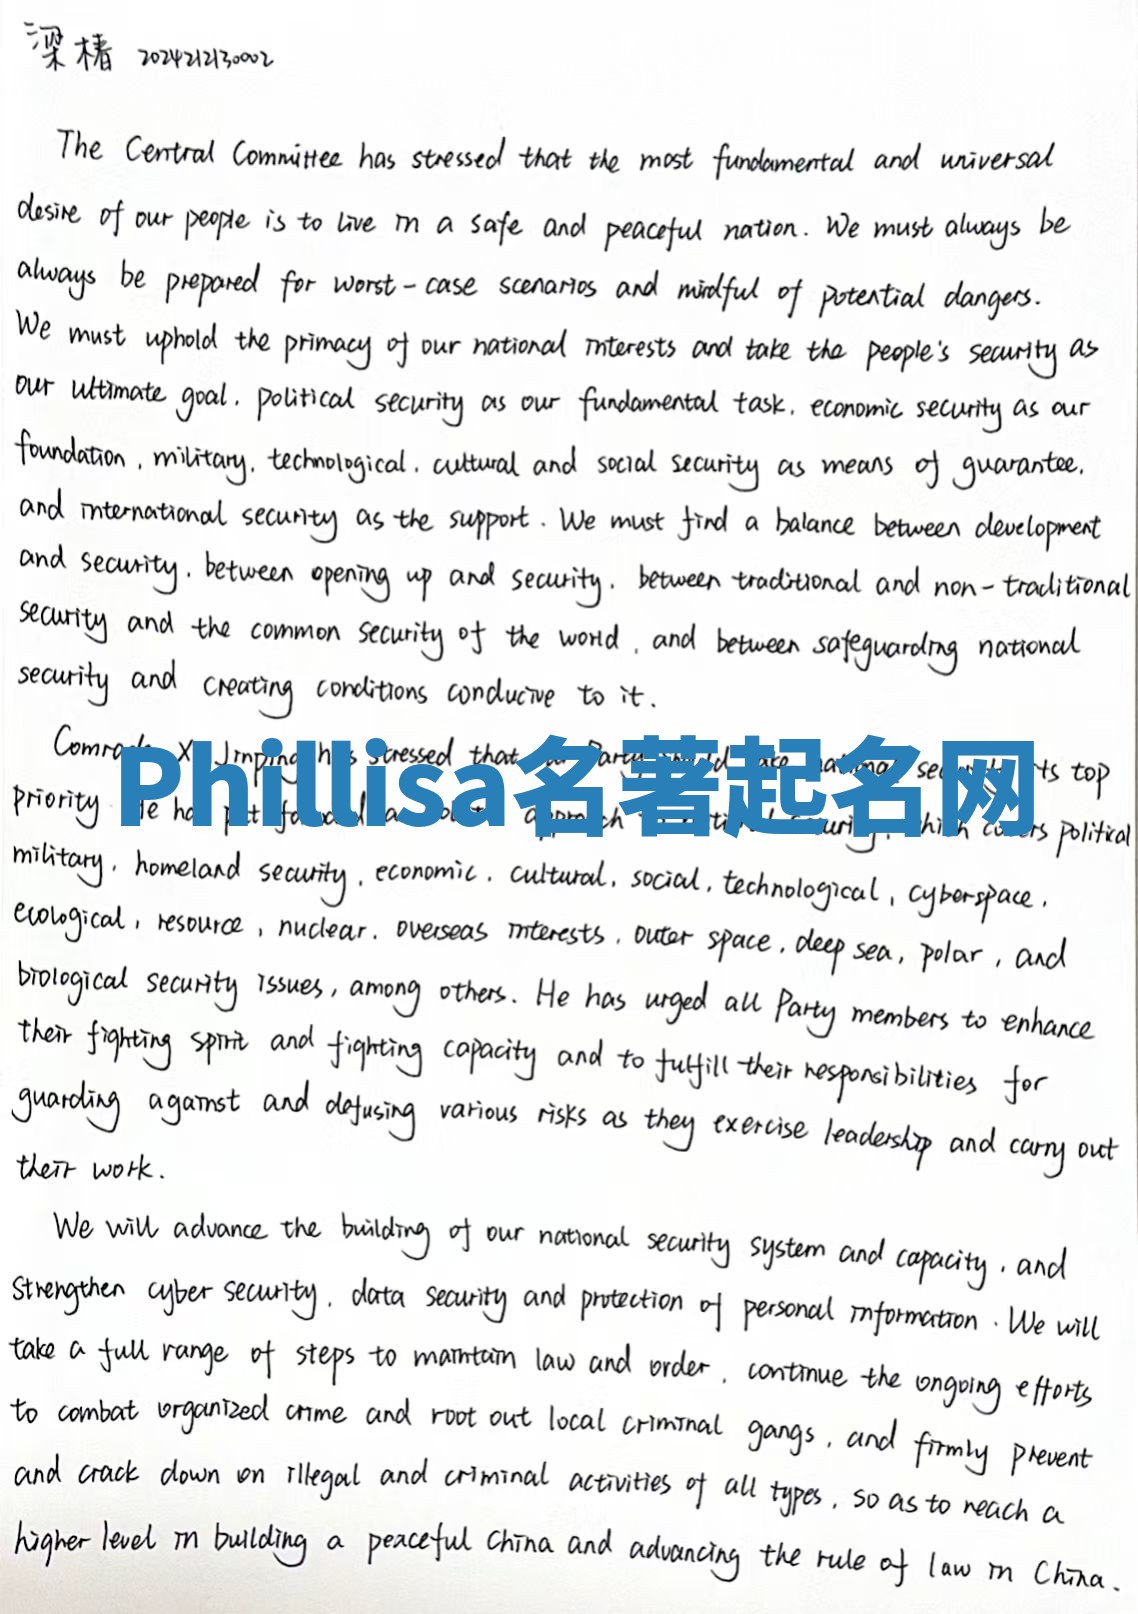 梁椿 2024212130002
The Central Committee has stressed that the most fundamental and universal
desire of our people is to live in a safe and peaceful nation. We must always be
always be prepared for worst-case scenarios and mindful of potential dangers.
We must uphold the primacy of our national interests and take the people's security as
our ultimate goal, political security as our fundamental task, economic security as our
foundation, military, technological, cultural and social security as means of guarantee,
and international security as the support. We must find a balance between development
and security, between opening up and security, between traditional and non-traditional
security and the common security of the world, and between safeguarding national
security and creating conditions conducive to it.
Jinping stressed that top
Phillisa名著起名网
priority He political
military, homeland security, economic, cultural, social, technological, cyberspace,
ecological, resource, nuclear, overseas interests, outer space, deep sea, polar, and
biological security issues, among others. He has urged all Party members to enhance
their fighting spirit and fighting capacity and to fulfill their responsibilities for
guarding against and defusing various risks as they exercise leadership and carry out
their work.
We will advance the building of our national security system and capacity, and
strengthen cyber security, data security and protection of personal information. We will
take a full range of steps to maintain law and order, continue the ongoing efforts
to combat organized crime and root out local criminal gangs, and firmly prevent
and crack down on illegal and criminal activities of all types, so as to reach a
higher level in building a peaceful China and advancing the rule of law in China.